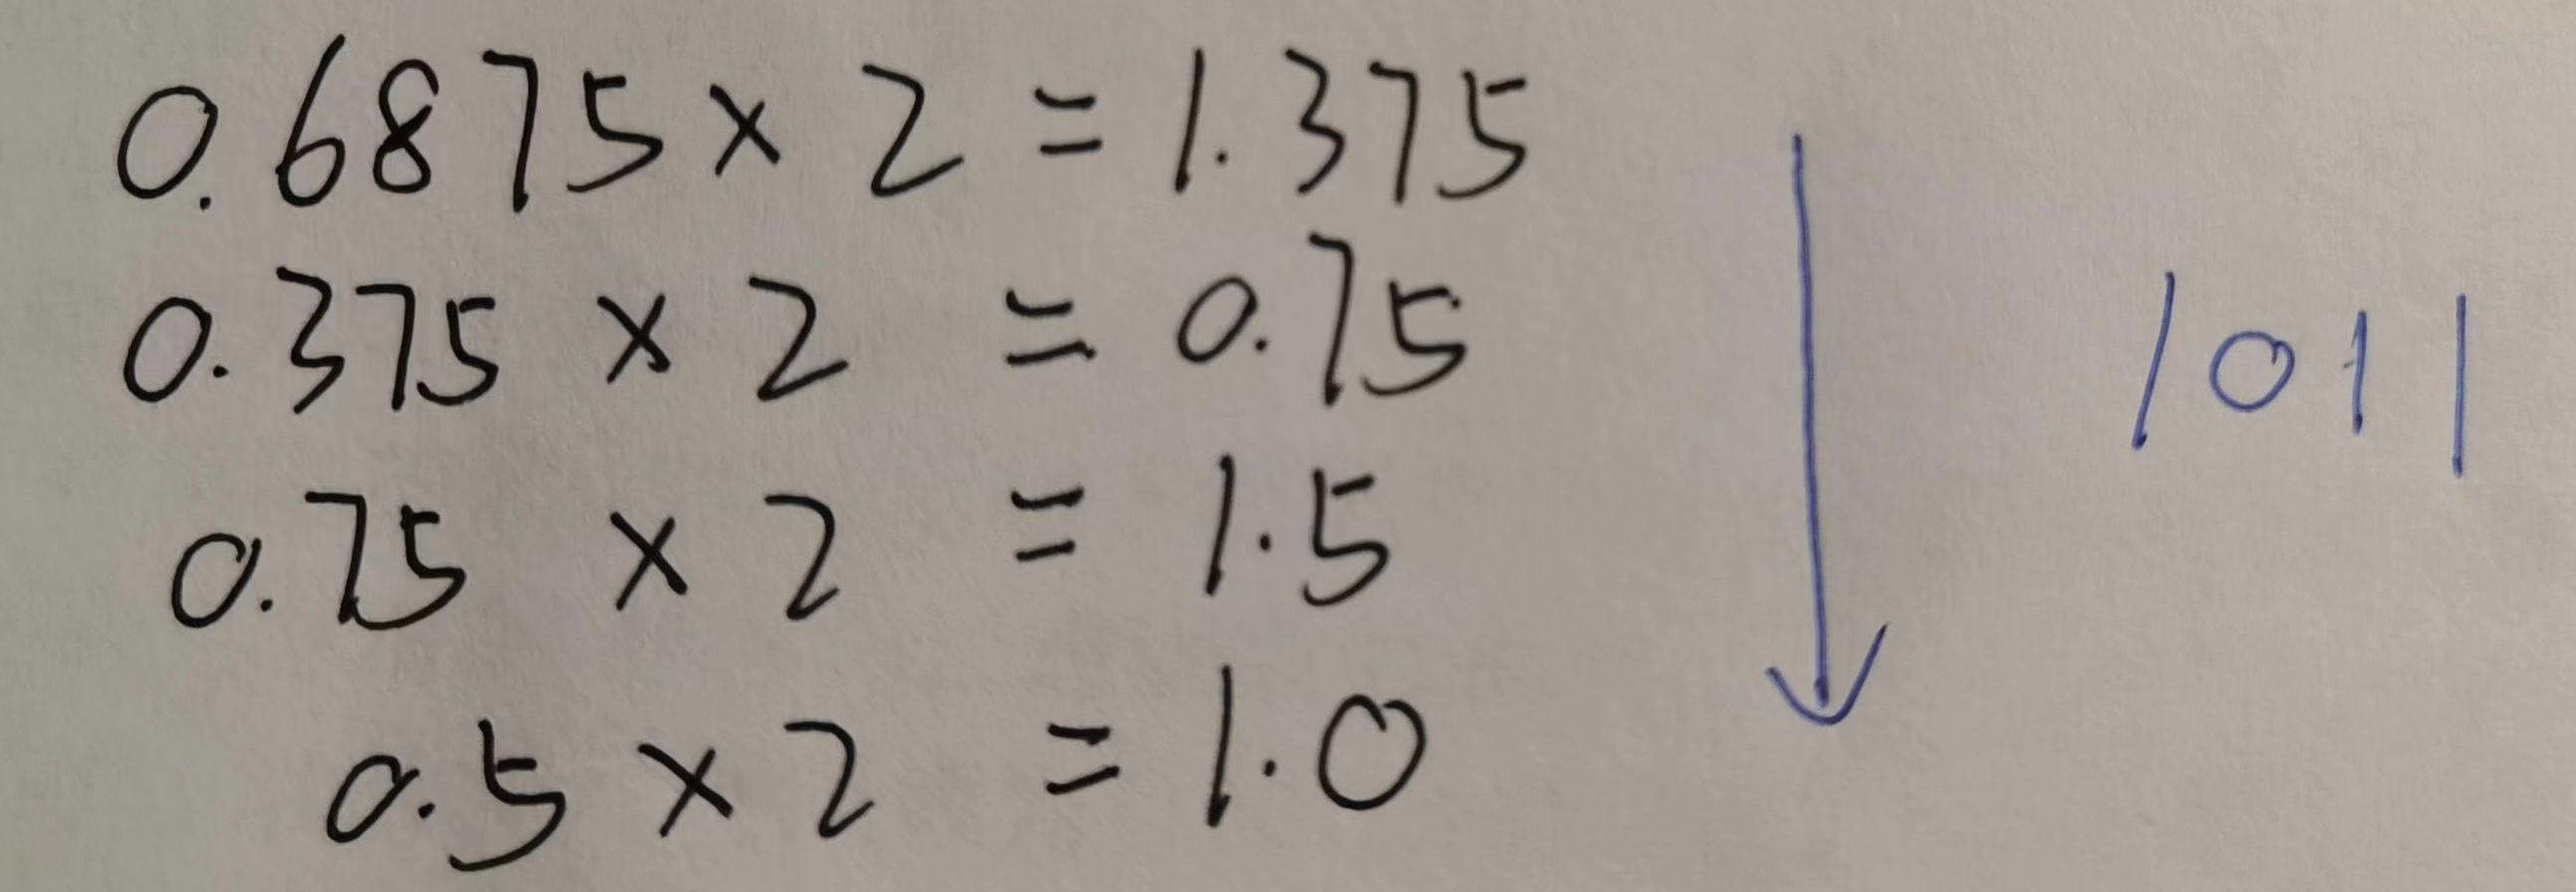 0.6875 × 2 = 1.375
0.375 × 2 = 0.75
0.75 × 2 = 1.5
0.5 × 2 = 1.0
1011